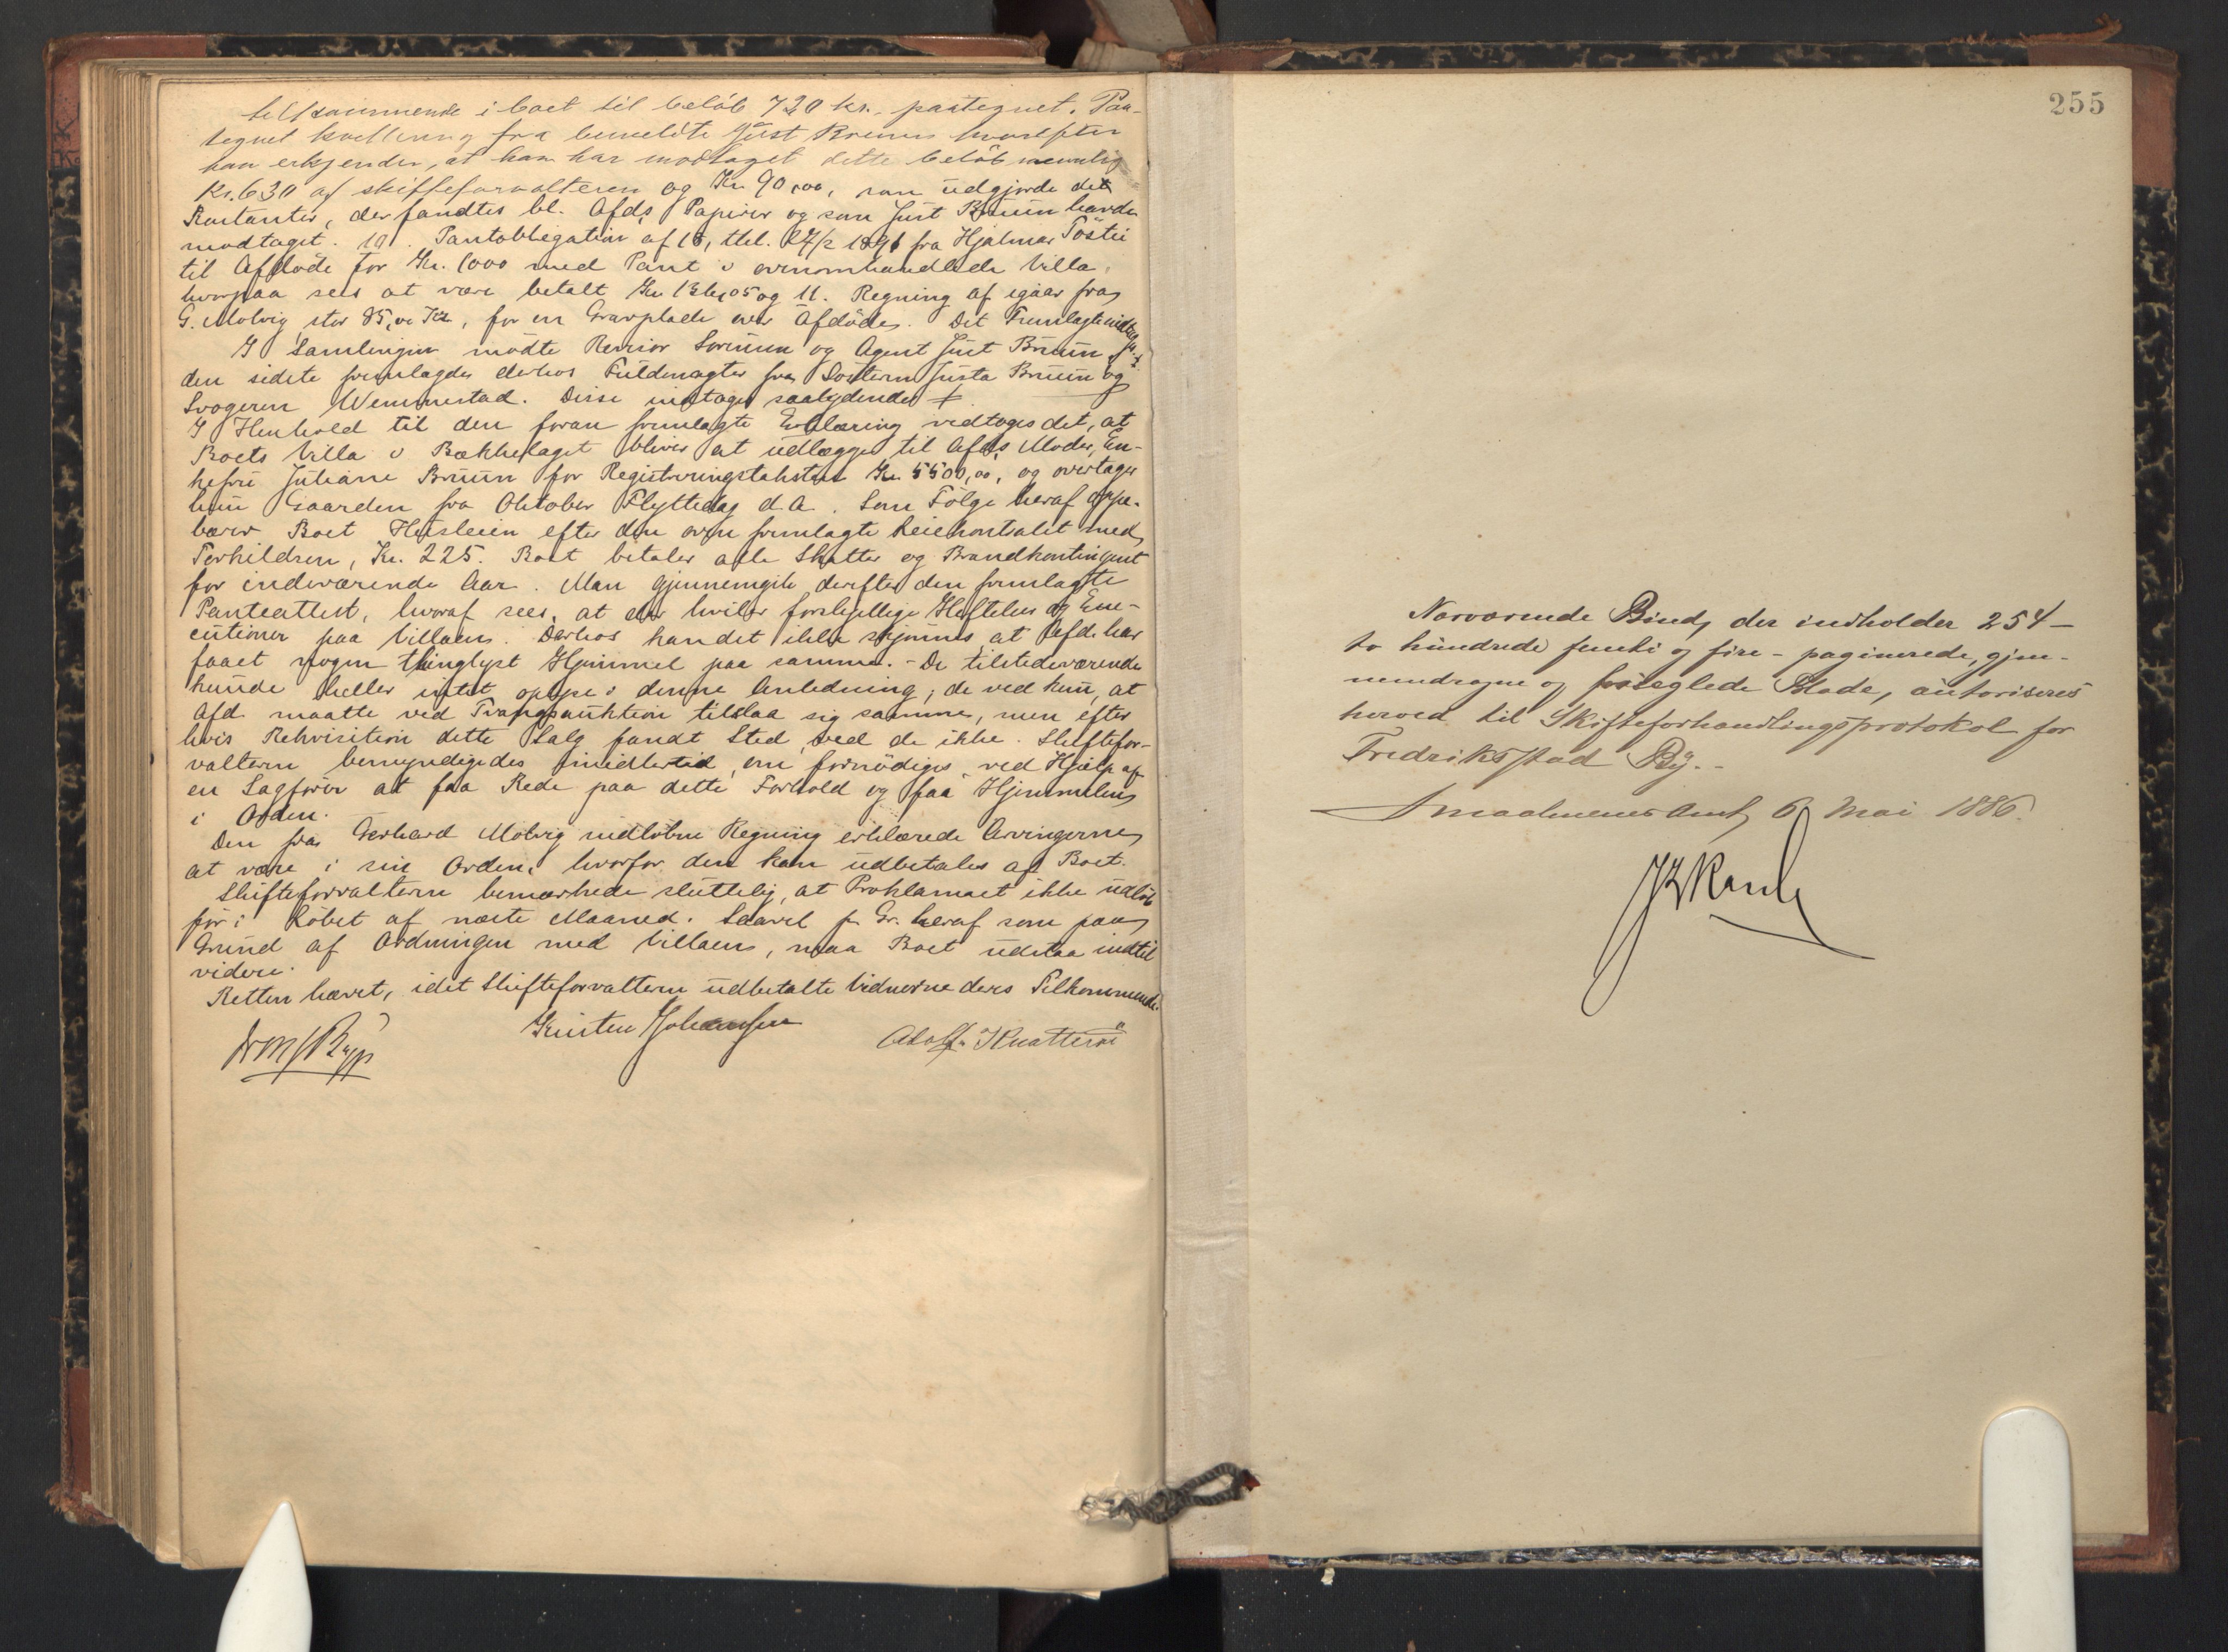 tilsammende i boet til beløb 720 kr. paategnet. Paa-
tegnet kvittering fra bemeldte Just Bruun hvorefter
han erkjender, at han har modtaget dette beløb nemlig
Kr. 630 af skifteforvalteren og Kr 90,00, som udgjorde det
Kontanter, der fandtes bl. Afds Papirer og som Just Bruun havde
modtaget. 10. Pantobligation af 15, ttel. 27/2 1891 fra Hjalmar
til Afdøde for Kr. 1000 med Pant i ovenomhandlede Villa,
hvorpaa sees at være betalt Kr og 11. Regning af igaar fra
G. Molvig stor 85,00 Kr, for en Gravplade over Afdøde. Det Fremlagte
I Samlingen mødte Revisor Sørensen og Agent Just Bruun,
den sidste fremlagde derhos Fuldmagter fra Søsteren Justa Bruun og
Svogeren Wennerstad. Disse indtages saalydende +
I Henhold til den foran fremlagte Erklæring vedtoges det, at
Boets Villa i Bækkelaget bliver at udlægge til Afds Moder, En-
kefru Juliane Bruun for Registreringstaksten Kr. 5500,00, og overtager
hun Gaarden fra Oktober Flyttedag d.A. Som Følge heraf oppe-
bærer Boet Husleien efter den oven fremlagte Leiekontrakt med
Torkildsen, Kr. 225. Boet betaler alle Skatter og Brandkontingent
for indeværende Aar. Man gjennemgik derefter den fremlagte
Panteattest, hvoraf sees, at der hviler forskjellige Heftelser og Exe-
cutioner paa Villaen. Derhos kan det ikke skjønnes at Afd. har
faaet nogen thinglyst Hjemmel paa samme. - De tilstedeværende
kunde heller intet oplyse i denne Anledning; de ved kun, at
Afd. maatte ved Tvangsauktion tilslaa sig samme, men efter
hvis Rekvisition dette Salg fandt Sted, ved de ikke. Skiftefor-
valteren bemyndigedes imidlertid, om fornødiges ved Hjælp af
en Sagfører at faa Rede paa dette Forhold og faa Hjemmelen
i Orden.
Den fra Gerhard Molvig indløbne Regning erklærede Arvingerne
at være i sin Orden, hvorfor den kan udbetales af Boet.
Skifteforvalteren bemærkede sluttelig, at Proklamaet ikke udløb
før i Løbet af næste Maaned. Saavel p. Gr. heraf som paa
Grund af Ordningen med Villaen, maa Boet udstaa indtil
videre.
Retten hævet, idet Skifteforvalteren udbetalte Vidnerne deres Tilkommende.
Kristen Johansen Adolf Knatterø
255
Nærværende Bind, der indholder 254 -
to hundrede femti og fire - paginerede, gjen-
nemdragne og forseglede Blade, autoriseres
herved til Skifteforhandlingsprotokol for
Fredriksstad By. -
Smaalenenes Amt, 6 Mai 1886.